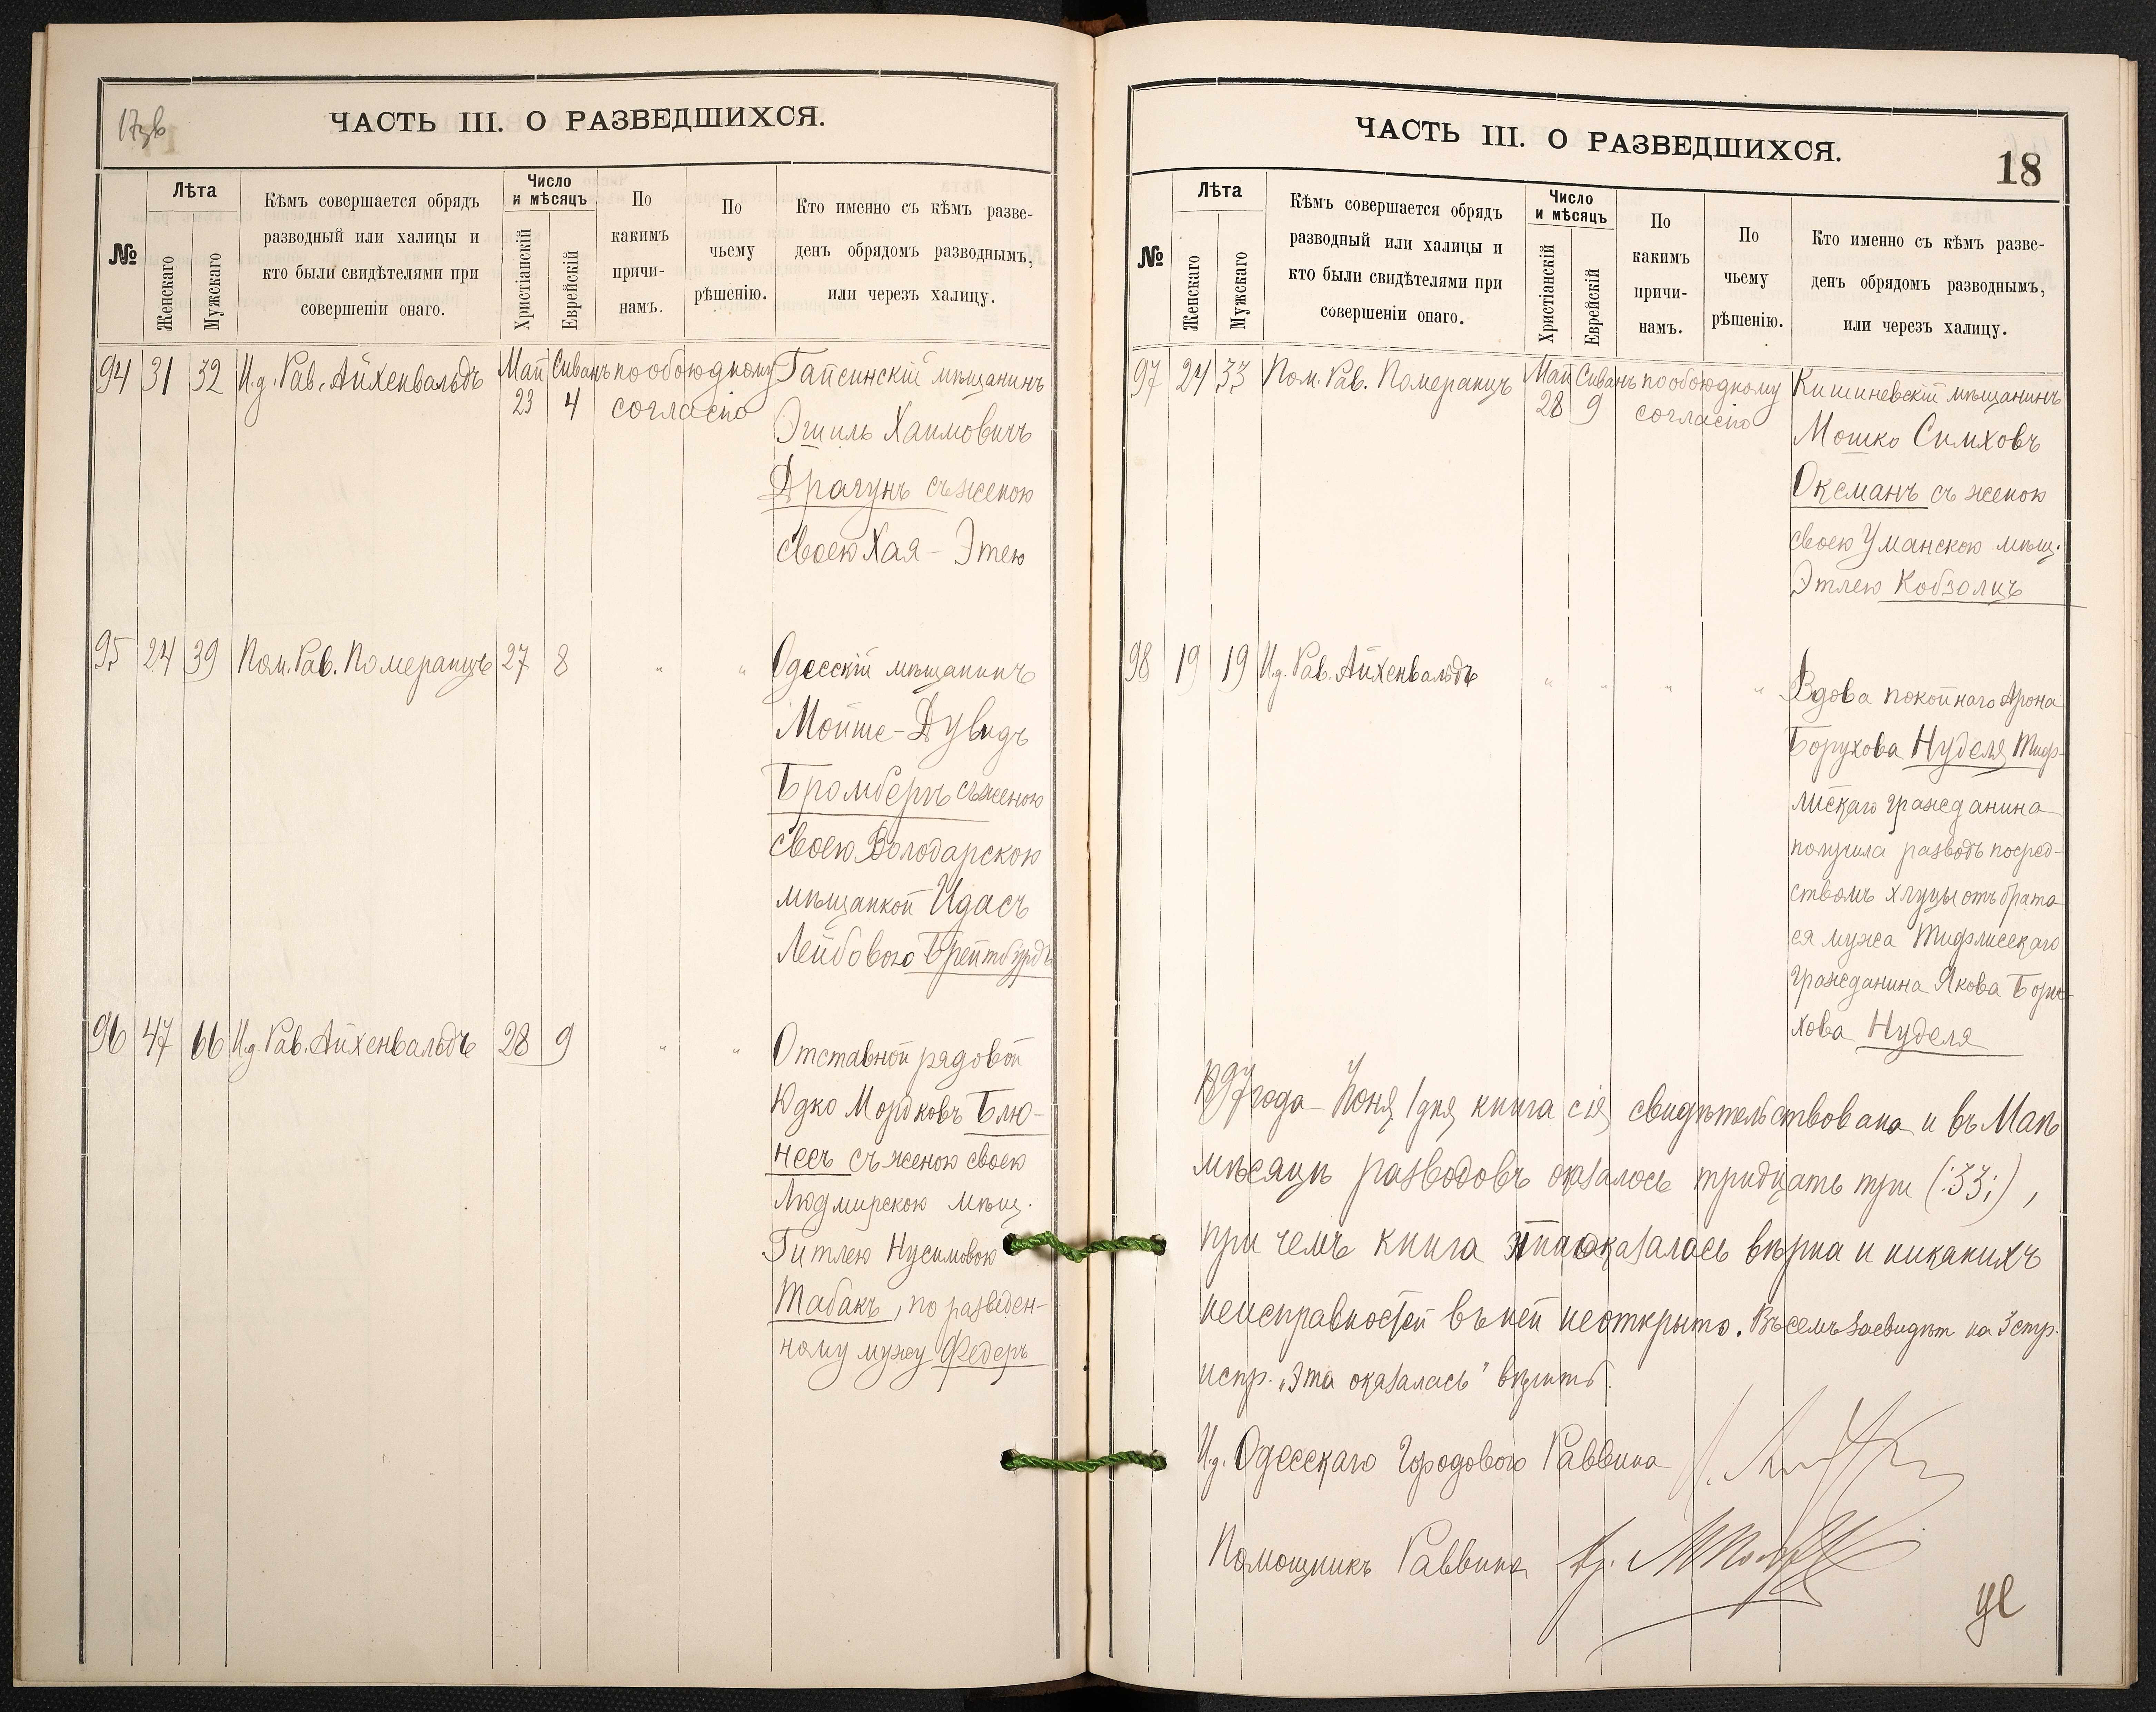 17зв
ЧАСТЬ III. О РАЗВЕДШИХСЯ.
№
Лѣта
Женскаго
Мужскаго
Кѣмъ совершается обрядъ
разводный или халицы и
кто были свидѣтелями при
совершеніи онаго.
Число
и мѣсяцъ
Христіанскій
Еврейскій
По
какимъ
причи-
намъ.
По
чьему
рѣшенію.
Кто именно съ кѣмъ разве-
денъ обрядомъ разводнымъ,
или черезъ халицу.
94 31 32 И.д. Рав. Айхенвальдъ Май 23 Сиванъ 4 по обоюдному согласію
Гайсинскій мѣщанинъ
Эшиль Хаимовичъ
Драгунъ съ женою
своею Хая-Этею
95 24 39 Пом. Рав. Померанцъ 27 8 " "
Одесскій мѣщанинъ
Мойше-Дувидъ
Бромбергъ съ женою
своею Володарскою
мѣщанкой Идасъ
Лейбовою Брейтбурдъ
96 47 66 И.д. Рав. Айхенвальдъ 28 9 " "
Отставной рядовой
Юдко Мордковъ Блю-
несъ съ женою своею
Людмирскою мѣщ.
Гитлею Нусимовою
Табакъ, по разведен-
ному мужу Федеръ
ЧАСТЬ III. О РАЗВЕДШИХСЯ.
18
№
Лѣта
Женскаго
Мужскаго
Кѣмъ совершается обрядъ
разводный или халицы и
кто были свидѣтелями при
совершеніи онаго.
Число
и мѣсяцъ
Христіанскій
Еврейскій
По
какимъ
причи-
намъ.
По
чьему
рѣшенію.
Кто именно съ кѣмъ разве-
денъ обрядомъ разводнымъ,
или черезъ халицу.
97 24 33 Пом. Рав. Померанцъ Май 28 Сиванъ 9 по обоюдному согласію
Кишиневскій мѣщанинъ
Мошко Симховъ
Оксманъ съ женою
своею Уманскою мѣщ.
Этлею Кобзолцъ
98 19 19 И.д. Рав. Айхенвальдъ " " " "
Вдова покойнаго Арона
Борухова Нуделя Тиф-
лискаго гражданина
получила разводъ посред-
ствомъ хлуцы отъ брата
ея мужа Тифлисскаго
гражданина Якова Бору-
хова Нуделя
года Іюня 1 дня книга сія свидѣтельствована и въ Маѣ
мѣсяцѣ разводовъ оказалось тридцать три (:33:),
при чемъ книга эта оказалась вѣрна и никакихъ
неисправностей въ ней не открыто. Въ семъ засвидѣт на 3 стр.
испр. „эта оказалась"
И.д. Одесскаго Городового Раввина
Помощникъ Раввина